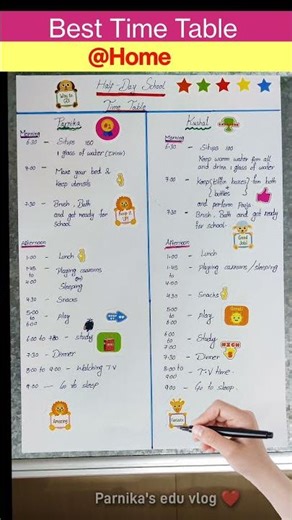 Best Time Table
@Home
Half Day School
Time Table
Parnika
Morning
6:30 - Situps 100
1 glass of water (Drink)
7:00 - Make your bed &
keep utensils
7:30 - Brush, Bath
and get ready for
School
Afternoon
1:00 - Lunch
1:45 to - Playing carroms
4:00 Sleeping
4:30 - Snacks
5:00 to 6:00 - play
6:00 to 7:30 - study
7:30 - Dinner
8:00 to 9:00 - Watching T.V
9:00 - Go to sleep
Kushal
Morning
6:30 - Situps 100
Keep warm water for all
and drink 1 glass of water
7:00 - Keep tiffin boxes for both
bottles
and perform Pooja
7:30 - Brush, Bath and get ready
for school
Good Job!
Afternoon
1:00 - Lunch
1:45 to - Playing carroms/sleeping
4:30 - Snacks
5:00 to - play
- Study
7:30 - Dinner
8:00 to 9:00 - T.V time
9:00 - Go to sleep
Parnika's edu vlog